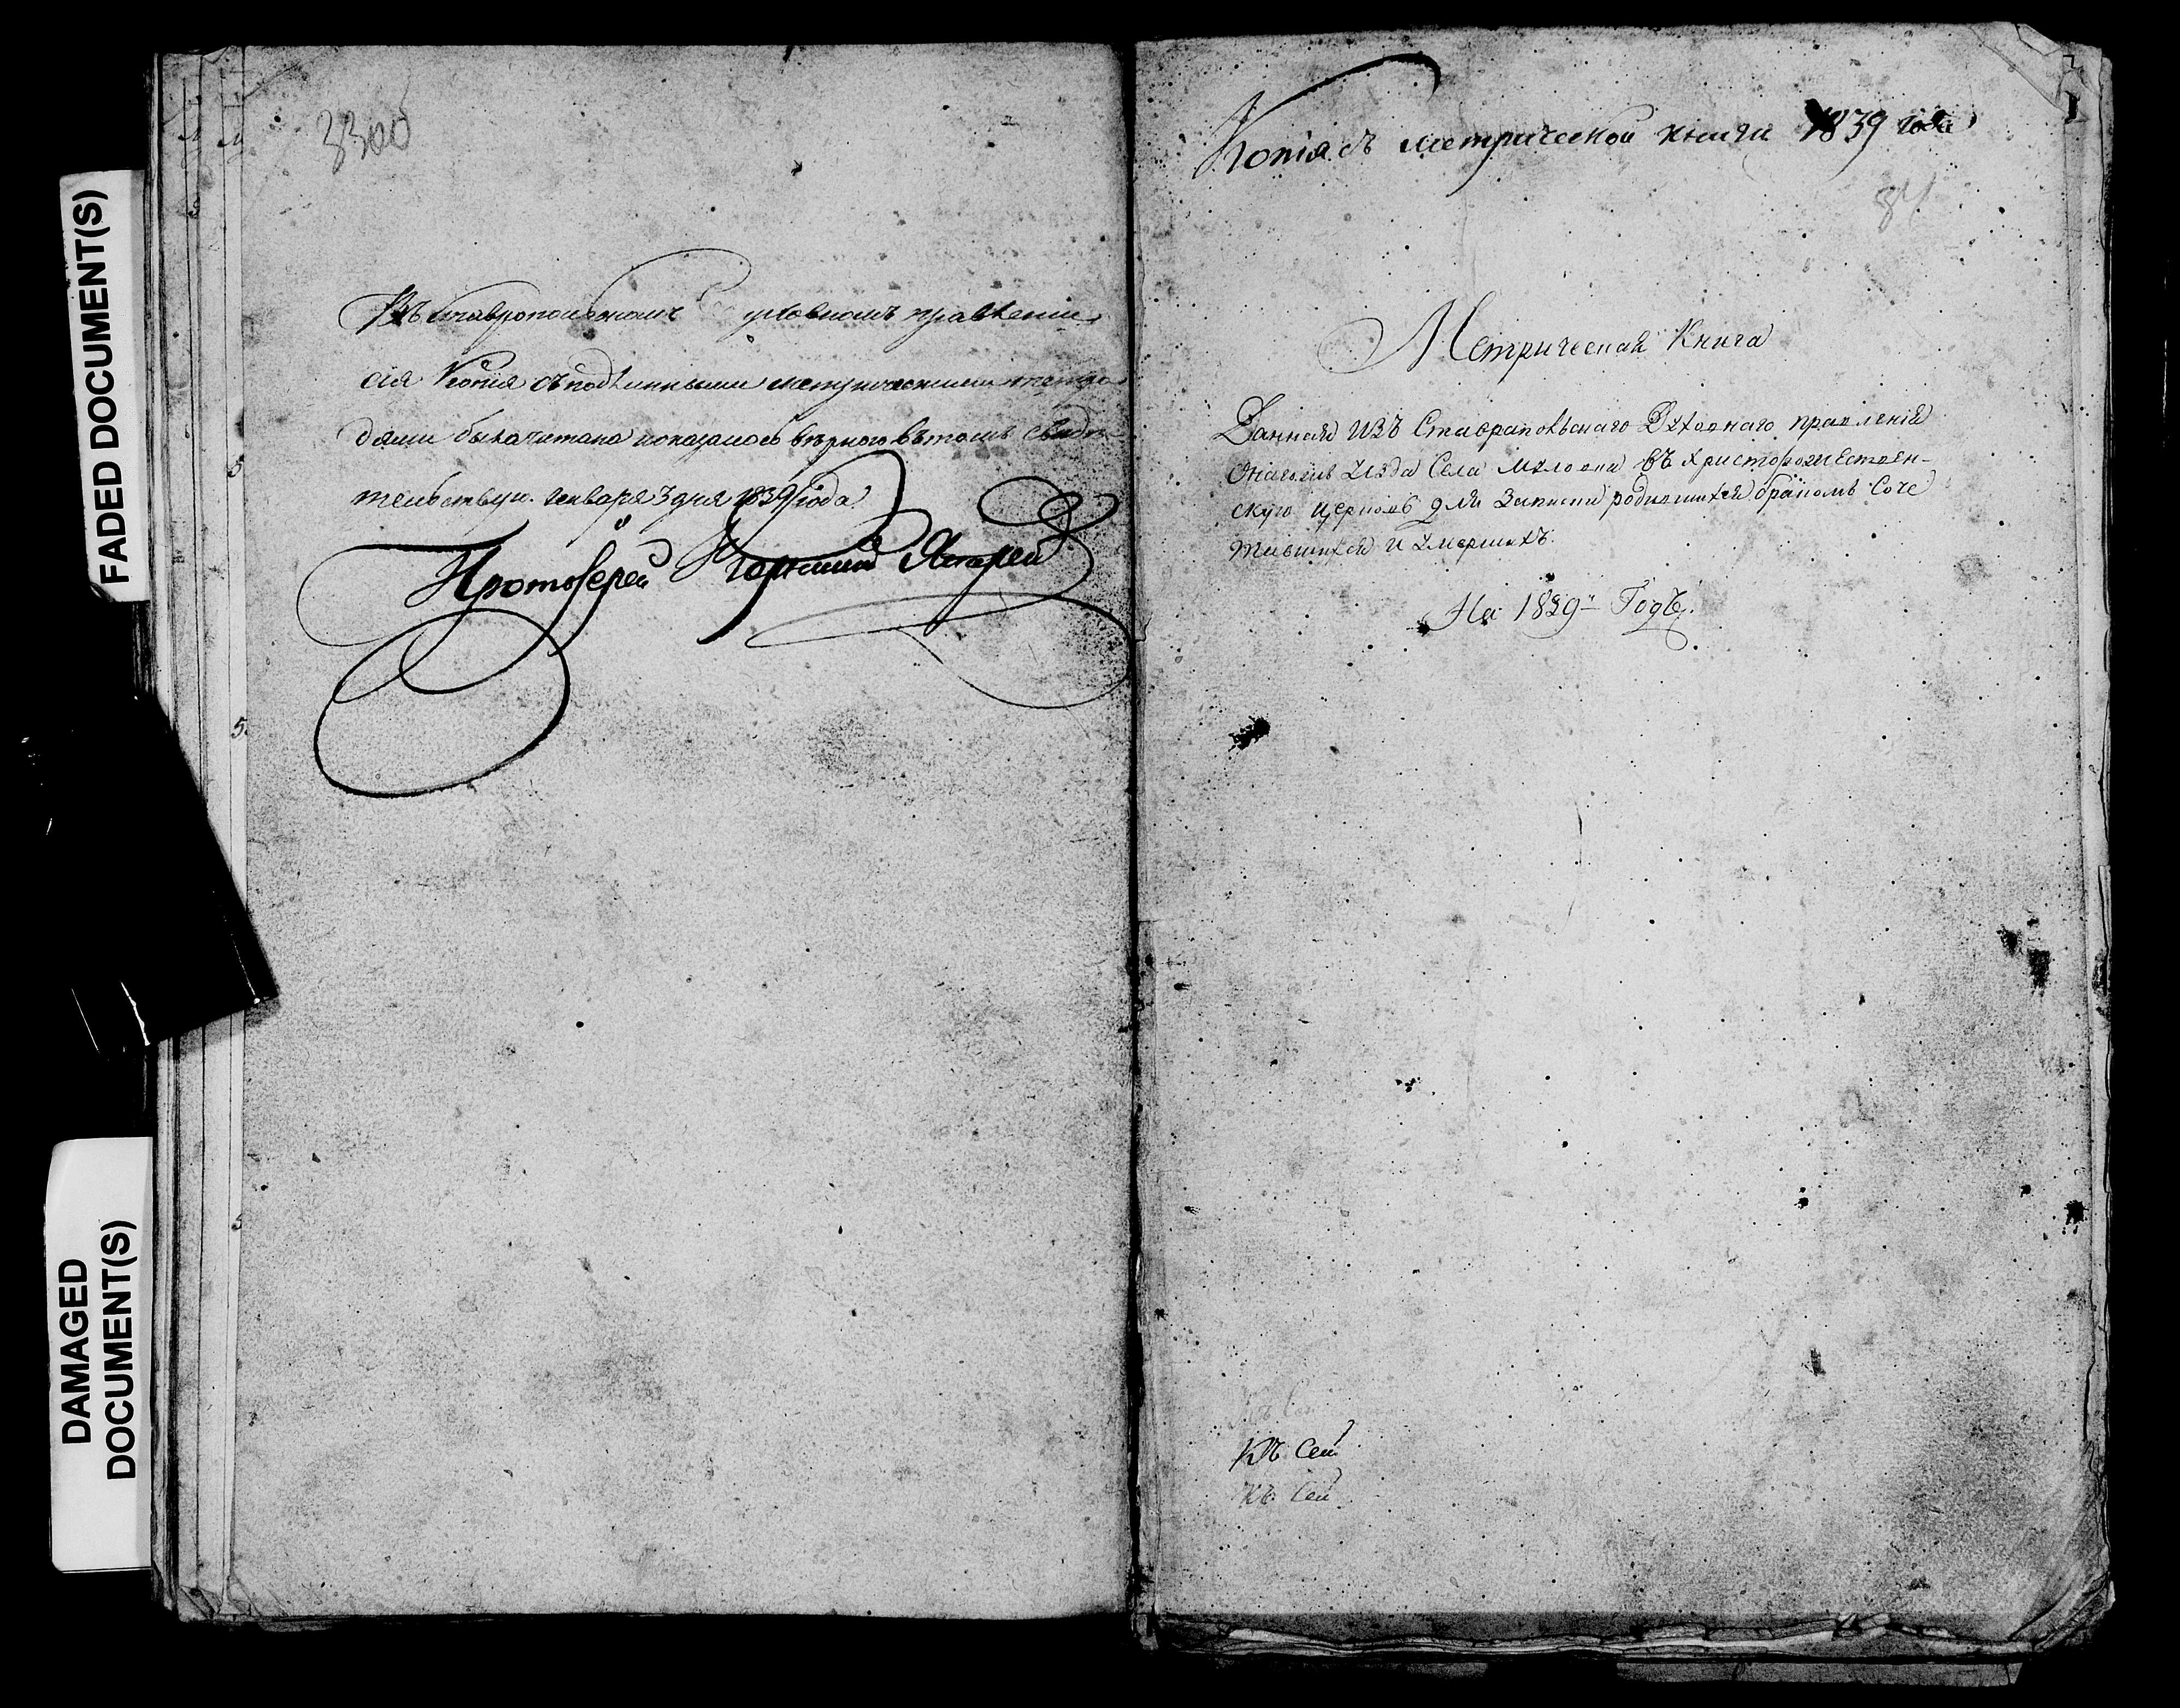 FADED DOCUMENT(S)
DAMAGED
DOCUMENT(S)
3300
Въ Ставропольскомъ Духовномъ правленіи
сія Копія съ подлинными метрическими тетра
дями была читана и оказалось вѣрною въ томъ свидѣ
тельствую. Генваря 3 дня 1839 года
Протоіерей
Копія съ метрической книги 1839 года
84
Метрическая Книга
Данная изъ Ставрапольскаго Духовнаго правленія
Уѣзда Села въ Христорожествен-
скую церковь для Записки родившихся бракомъ Соче
тавшихся и Умершихъ.
На 1839й Годъ.
Къ Сей
Къ Сей
Къ Сей